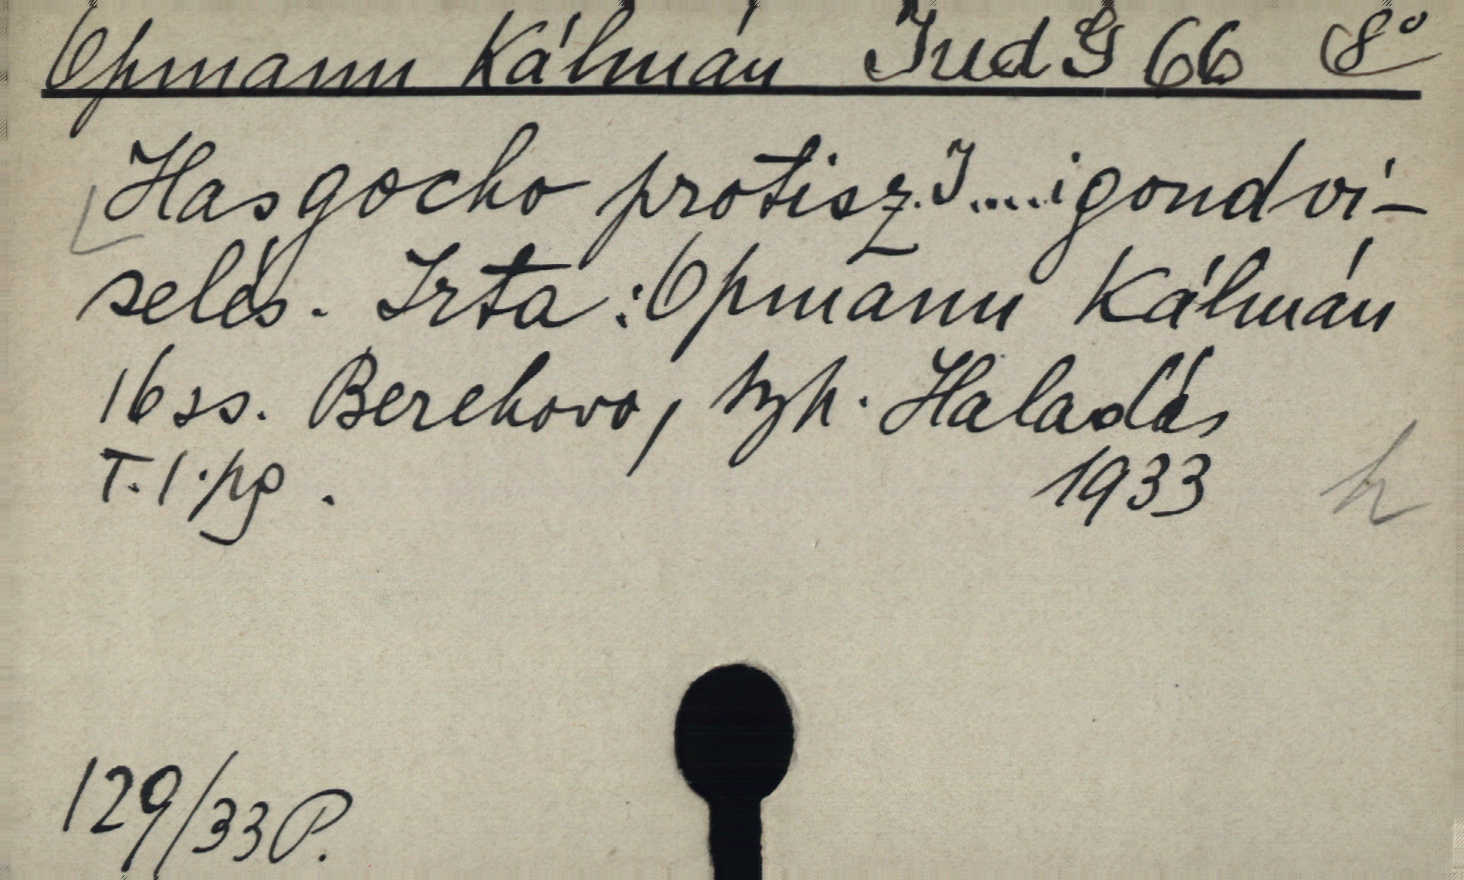 Opmann Kálmán Jud G 66 8°
Hasgocho protisz. I....igondvi-
selés. Irta: Opmann Kálmán
16 ss. Berehovo, tzh. Haladás
T. 1. pg. 1933
129/33 P.